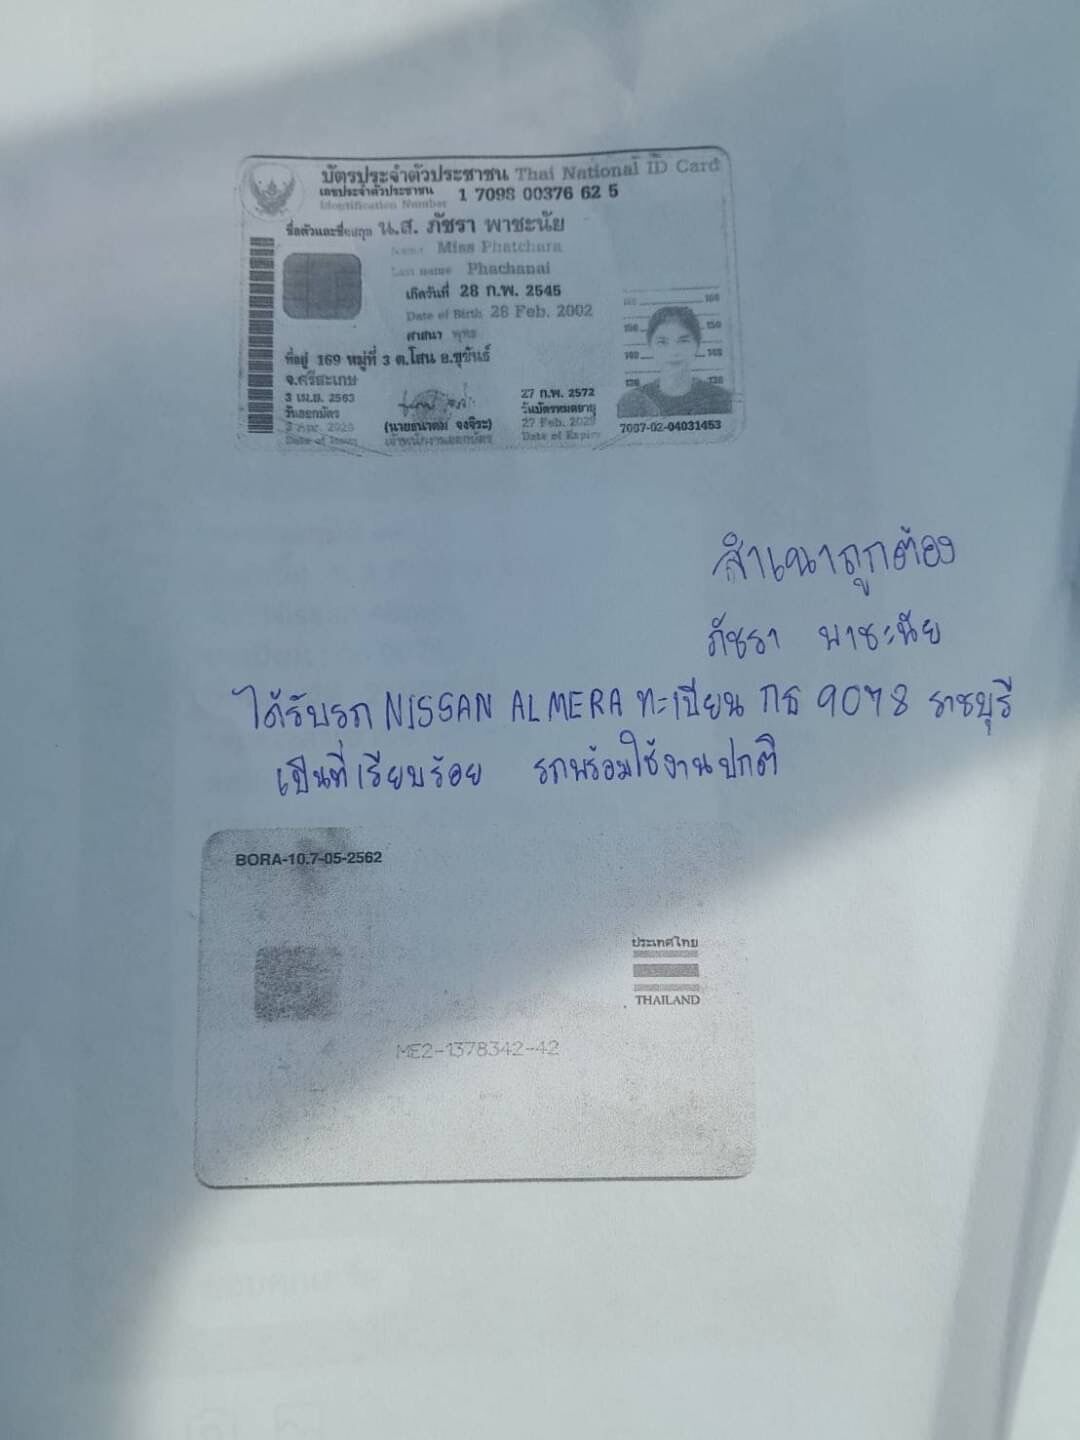 บัตรประจำตัวประชาชน Thai National ID Card
เลขประจำตัวประชาชน 1 7098 00376 62 5
Identification Number
ชื่อตัวและชื่อสกุล น.ส. ภัชรา พาชะนัย
Name Miss Phatchara
Last name Phachanai
เกิดวันที่ 28 ก.พ. 2545
Date of Birth 28 Feb. 2002
ศาสนา พุทธ
ที่อยู่ 169 หมู่ที่ 3 ต.โสน อ.ขุขันธ์
จ.ศรีสะเกษ
3 เม.ย. 2563
วันออกบัตร
3 Apr. 2020
Date of Issue
เจ้าพนักงานออกบัตร
27 ก.พ. 2572
วันบัตรหมดอายุ
27 Feb. 2029
Date of Expiry
160 160
150 150
140 140
130 130
7097-02-04031453
สำเนาถูกต้อง
ภัชรา พาชะนัย
ได้รับรถ NISSAN ALMERA ทะเบียน กธ 9078 ราชบุรี
เป็นที่เรียบร้อย รถพร้อมใช้งานปกติ
BORA-10.7-05-2562
ประเทศไทย
THAILAND
ME2-1378342-42